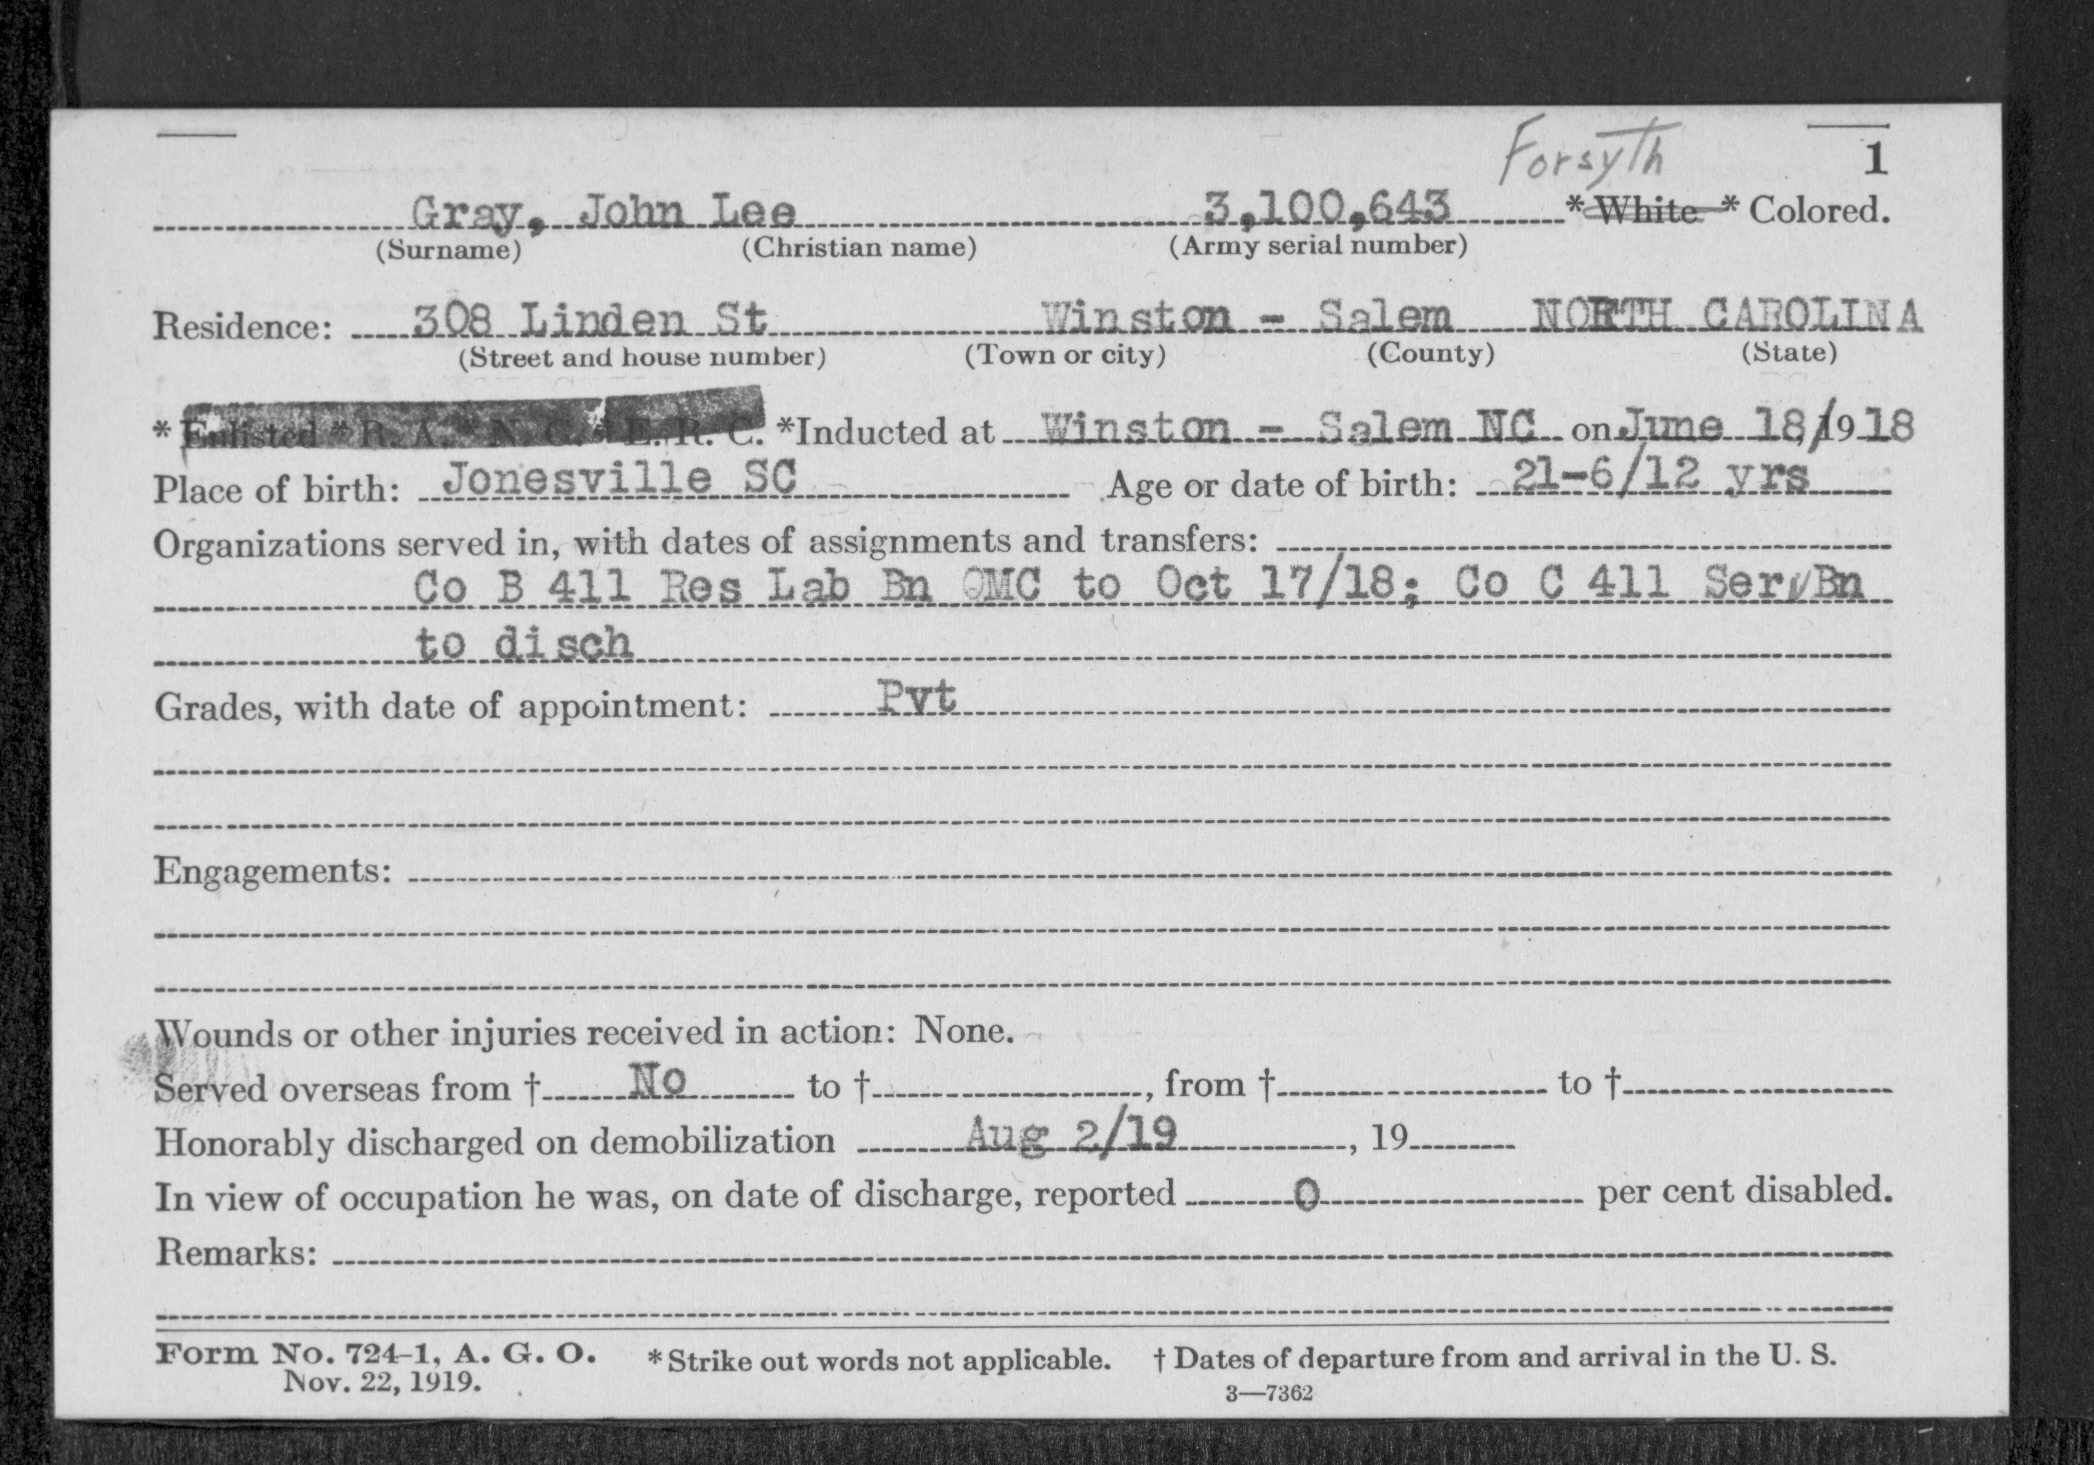 Forsyth
1
Gray, John Lee 3,100,643 *White * Colored.
(Surname) (Christian name) (Army serial number)
Residence: 308 Linden St Winston - Salem NORTH CAROLINA
(Street and house number) (Town or city) (County) (State)
* Enlisted * R. A. * N. G. * E. R. C. *Inducted at Winston - Salem NC on June 18/, 1918
Place of birth: Jonesville SC Age or date of birth: 21-6/12 yrs
Organizations served in, with dates of assignments and transfers:
Co B 411 Res Lab Bn QMC to Oct 17/18; Co C 411 Serv Bn
to disch
Grades, with date of appointment: Pvt
Engagements:
Wounds or other injuries received in action: None.
Served overseas from † No to †, from † to †
Honorably discharged on demobilization Aug 2/19, 19
In view of occupation he was, on date of discharge, reported 0 per cent disabled.
Remarks:
Form No. 724-1, A. G. O. *Strike out words not applicable. † Dates of departure from and arrival in the U. S.
Nov. 22, 1919. 3—7362